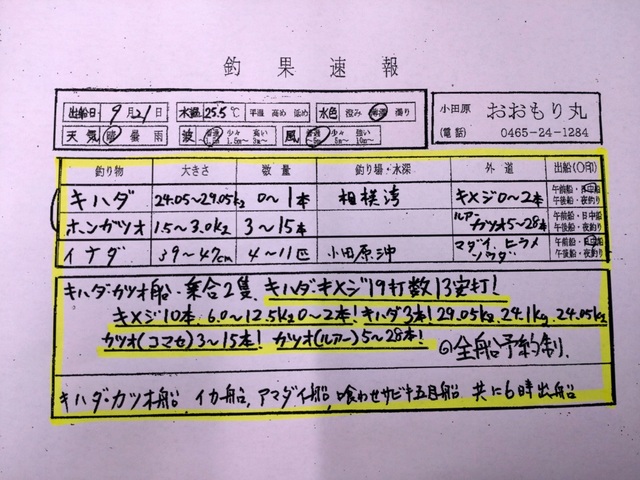 釣果速報
出船日 9月21日 水温 25.5℃ 平温 高め 低め 水色 澄み 薄濁 濁り
天気 晴 曇 雨 波 少々 高い 風 少々 強い
小田原 おおもり丸
(電話) 0465-24-1284
釣り物 大きさ 数量 釣り場・水深 外道 出船(〇印)
キハダ 24.05~29.05kg 0~1本 相模湾 キメジ0~2本 午前船・日中船 午後船・夜釣り
ホンガツオ 1.5~3.0kg 3~15本 ルアーカツオ5~28本 午前船・日中船 午後船・夜釣り
イナダ 39~47cm 4~11匹 小田原沖 マダイ、ヒラメ ソウダ 午前船・日中船 午後船・夜釣り
キハダ・カツオ船・乗合2隻 キハダ・キメジ19打数13実打!
キメジ10本、6.0~12.5kg0~2本! キハダ3本! 29.05kg、24.1kg、24.05kg
カツオ(コマセ)3~15本! カツオ(ルアー)5~28本! ◎全船予約制、
キハダ・カツオ船、イカ船、アマダイ船、喰わせサビキ五目船 共に6時出船